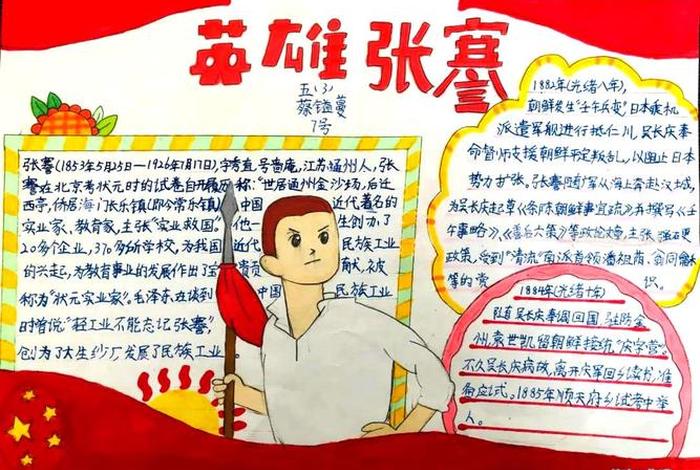 英雄张謇
五(3)
蔡镒蔓
7号
张謇(1853年5月25日—1926年7月17日),字季直,号啬庵,江苏通州人,张
謇在北京考状元时的试卷自开履历称:"世居通州金沙场,后迁
西亭,侨居海门长乐镇(即今常乐镇)中国近代著名的
实业家、教育家,主张"实业救国"他一生创办了
20多个企业,370多所学校,为我国近代民族工业
的兴起,为教育事业的发展作出了宝贵贡献,被
称为"状元实业家"。毛泽东在谈到中国民族工业
时曾说:"轻工业不能忘记张謇"
创办了大生纱厂发展了民族工业
1882年(光绪八年),
朝鲜发生"壬午兵变",日本乘机
派遣军舰进行抵仁川,吴长庆奉
命督师支援朝鲜平定叛乱,以阻止日本
势力扩张。张謇随庆军从海上奔赴汉城,
为吴长庆起草《条陈朝鲜事宜疏》并撰写《壬
午事略》、《善后六策》等政论文章,主张强硬
政策,受到"清流"南派首领潘祖荫、翁同龢
等的赏识。
1884年(光绪十年)
随吴长庆奉调回国,驻防金
州,袁世凯留朝鲜接统"庆字营"。
不久吴长庆病故,离开庆军回乡读书,准
备应试。1885年顺天府乡试考中举
人。